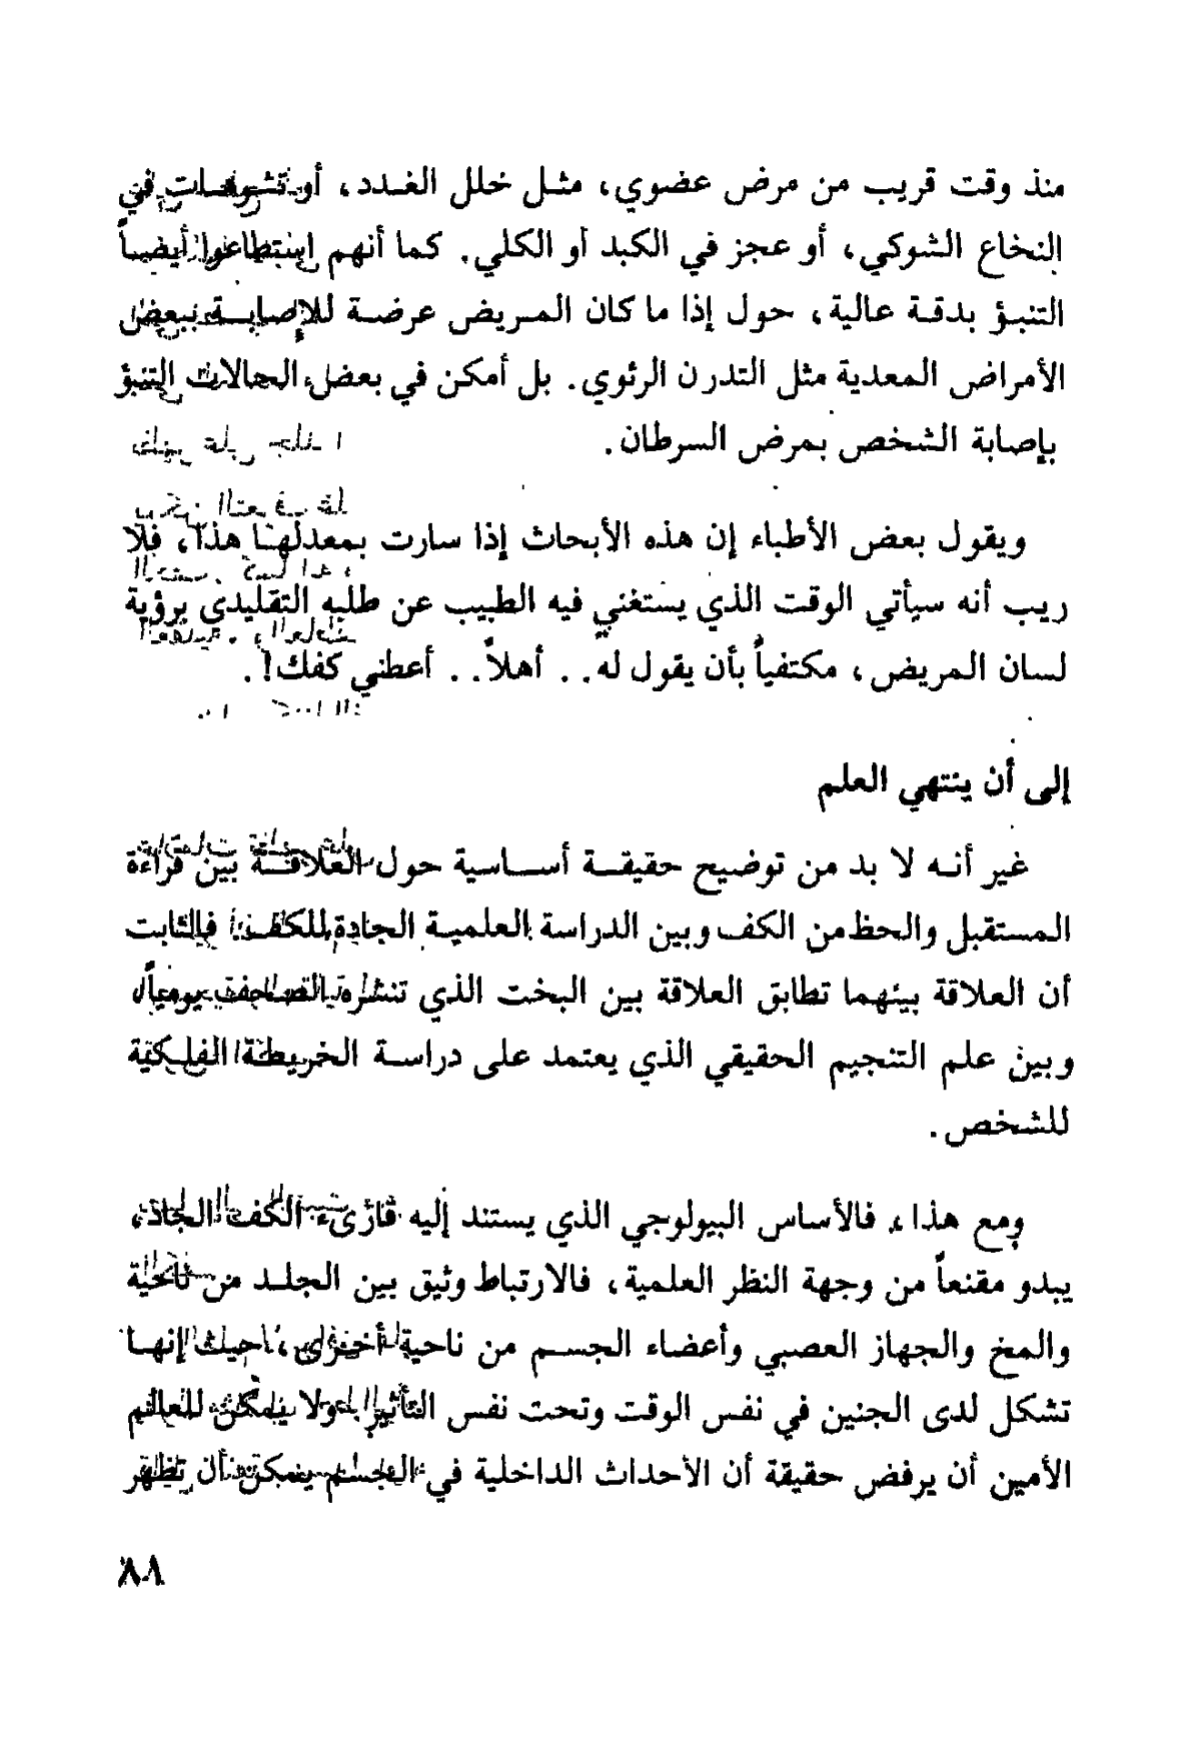 منذ وقت قريب من مرض عضوي، مثل خلل الغدد، أو تشوهات في
النخاع الشوكي، أو عجز في الكبد أو الكلي. كما أنهم إستطاعوا أيضاً
التنبؤ بدقة عالية، حول إذا ما كان المريض عرضة للإصابة ببعض
الأمراض المعدية مثل التدرن الرئوي. بل أمكن في بعض الحالات التنبؤ
بإصابة الشخص بمرض السرطان.
ويقول بعض الأطباء إن هذه الأبحاث إذا سارت بمعدلها هذا، فلا
ريب أنه سيأتي الوقت الذي يستغني فيه الطبيب عن طلبه التقليدي برؤية
لسان المريض، مكتفياً بأن يقول له.. أهلاً.. أعطني كفك!.
إلى أن ينتهي العلم
غير أنه لا بد من توضيح حقيقة أساسية حول العلاقة بين قراءة
المستقبل والحظ من الكف وبين الدراسة العلمية الجادة للكف. فالثابت
أن العلاقة بينهما تطابق العلاقة بين البخت الذي تنشره الصحف يومياً،
وبين علم التنجيم الحقيقي الذي يعتمد على دراسة الخريطة الفلكية
للشخص.
ومع هذا، فالأساس البيولوجي الذي يستند إليه قارىء الكف الجاد،
يبدو مقنعاً من وجهة النظر العلمية، فالارتباط وثيق بين الجلد من ناحية
والمخ والجهاز العصبي وأعضاء الجسم من ناحية أخرى، حيث إنها
تشكل لدى الجنين في نفس الوقت وتحت نفس التأثير. ولا يمكن للعالم
الأمين أن يرفض حقيقة أن الأحداث الداخلية في الجسم يمكن أن تظهر
٨٨